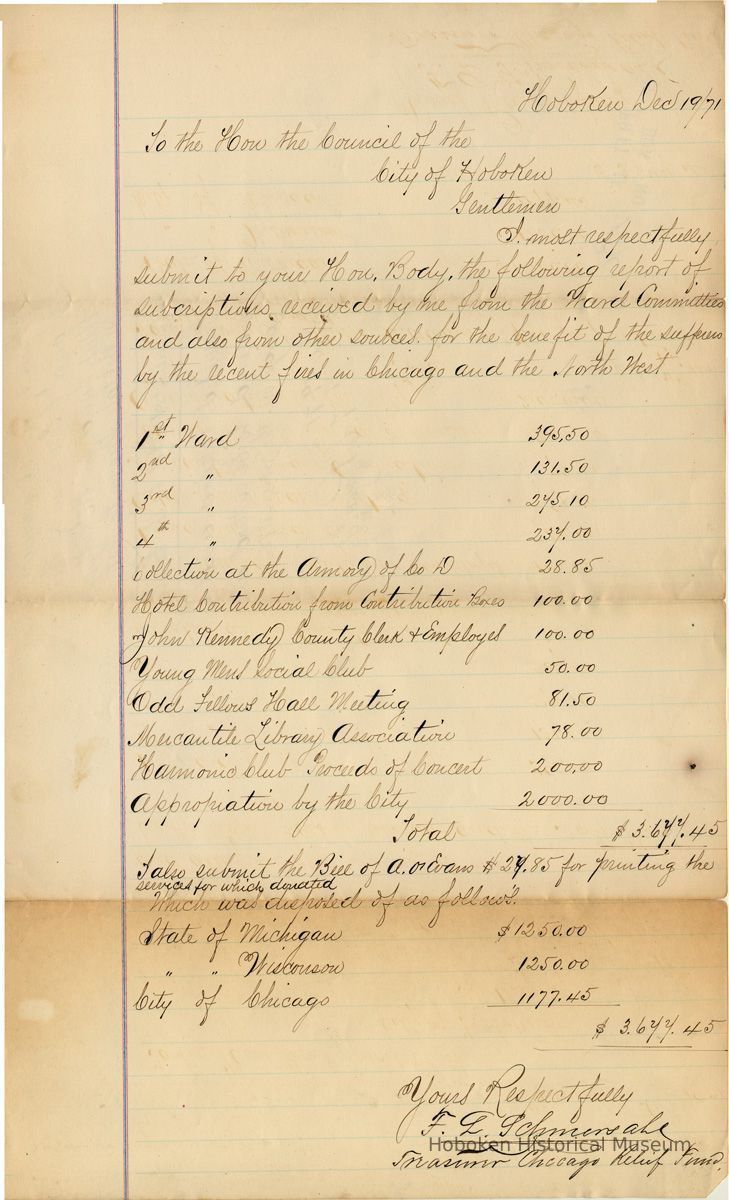 Hoboken Dec 19/71
To the Hon the Council of the
City of Hoboken
Gentlemen
I. most respectfully
submit to your Hon. Body, the following report of
subcriptions received by me from the Ward Committies
and also from other sources. for the benefit of the sufferers
by the recent fires in Chicago and the North West
1st " Ward 395.50
2nd " 131.50
3rd " 275.10
4th " 237.00
Collection at the Armory of Co D 28.85
Hotel Contribution from Contribution Boxes 100.00
John Kennedy County Clerk + Employes 100.00
Young Mens Social Club 50.00
Odd Fellows Hall Meeting 81.50
Mercantile Library Association 78.00
Harmonic Club Proceeds of Concert 200.00
Appropiation by the City 2000.00
Total $ 3.677.45
I also submit the Bill of A. O. Evans $ 27.85 for printing the
services for which donated
Which was disposed of as follows.
State of Michigan $1250.00
" " Wisconson 1250.00
City of Chicago 1177.45
$ 3.677.45
Yours Respectfully
F. L. Schmersahl
Hoboken Historical Museum
Treasurer Chicago Relief Fund.